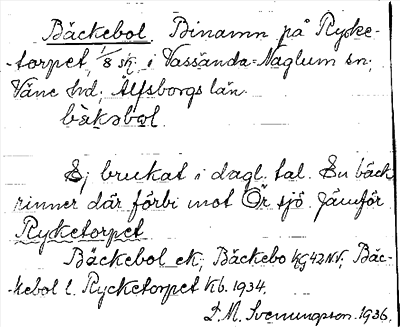 Bäckebol. Binamn på Ryske-
-torpet, 1/8 sk, i Vassända-Naglum sn,
Väne hd, Älfsborgs län.
bäkəbol.
Ej brukat i dagl. tal. En bäck
rinner där förbi mot Ör sjö. Jämför
Rycketorpet
Bäckebol ek; Bäckebo Kg 42 NV, Bäc-
kebol l. Rycketorpet Kb. 1934.
D. M. Svenungson. 1936.